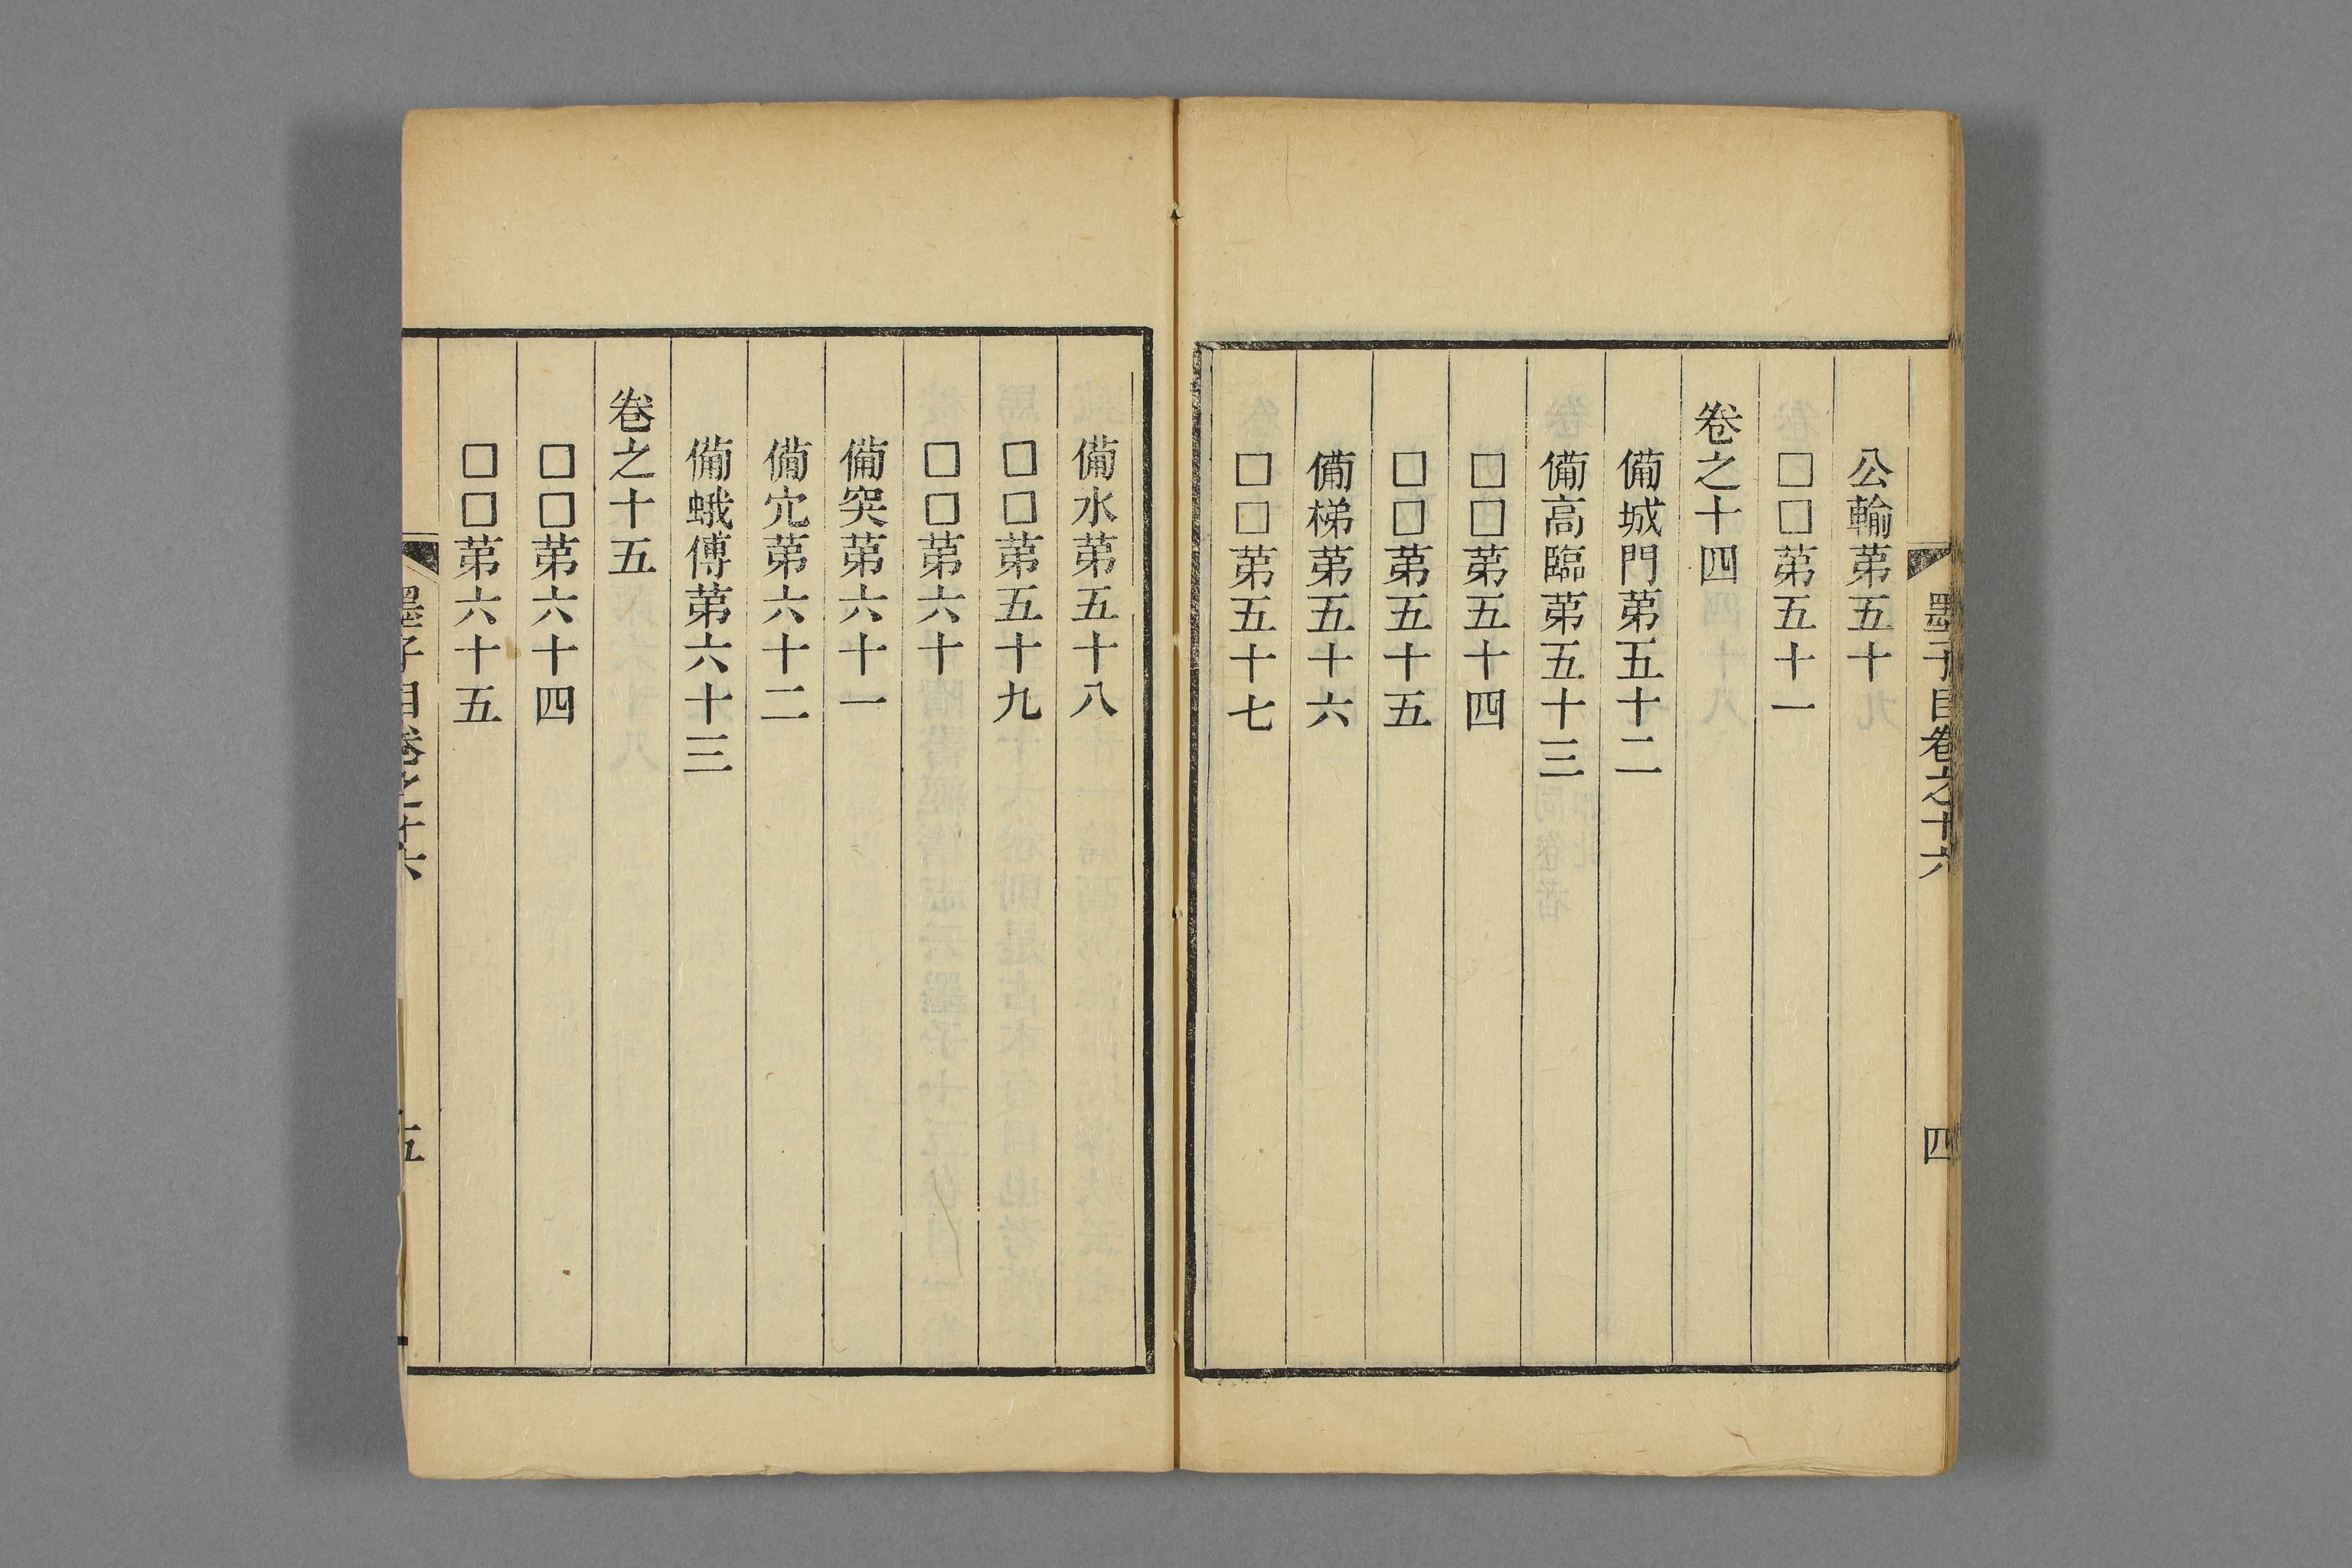 墨子目卷之十六
四
公輸苐五十
□□苐五十一
卷之十四
備城門苐五十二
備高臨苐五十三
□□苐五十四
□□苐五十五
備梯苐五十六
□□苐五十七
備水苐五十八
□□苐五十九
□□苐六十
備突苐六十一
備穴苐六十二
備蛾傅苐六十三
卷之十五
□□苐六十四
□□苐六十五
墨子目卷之十六
五